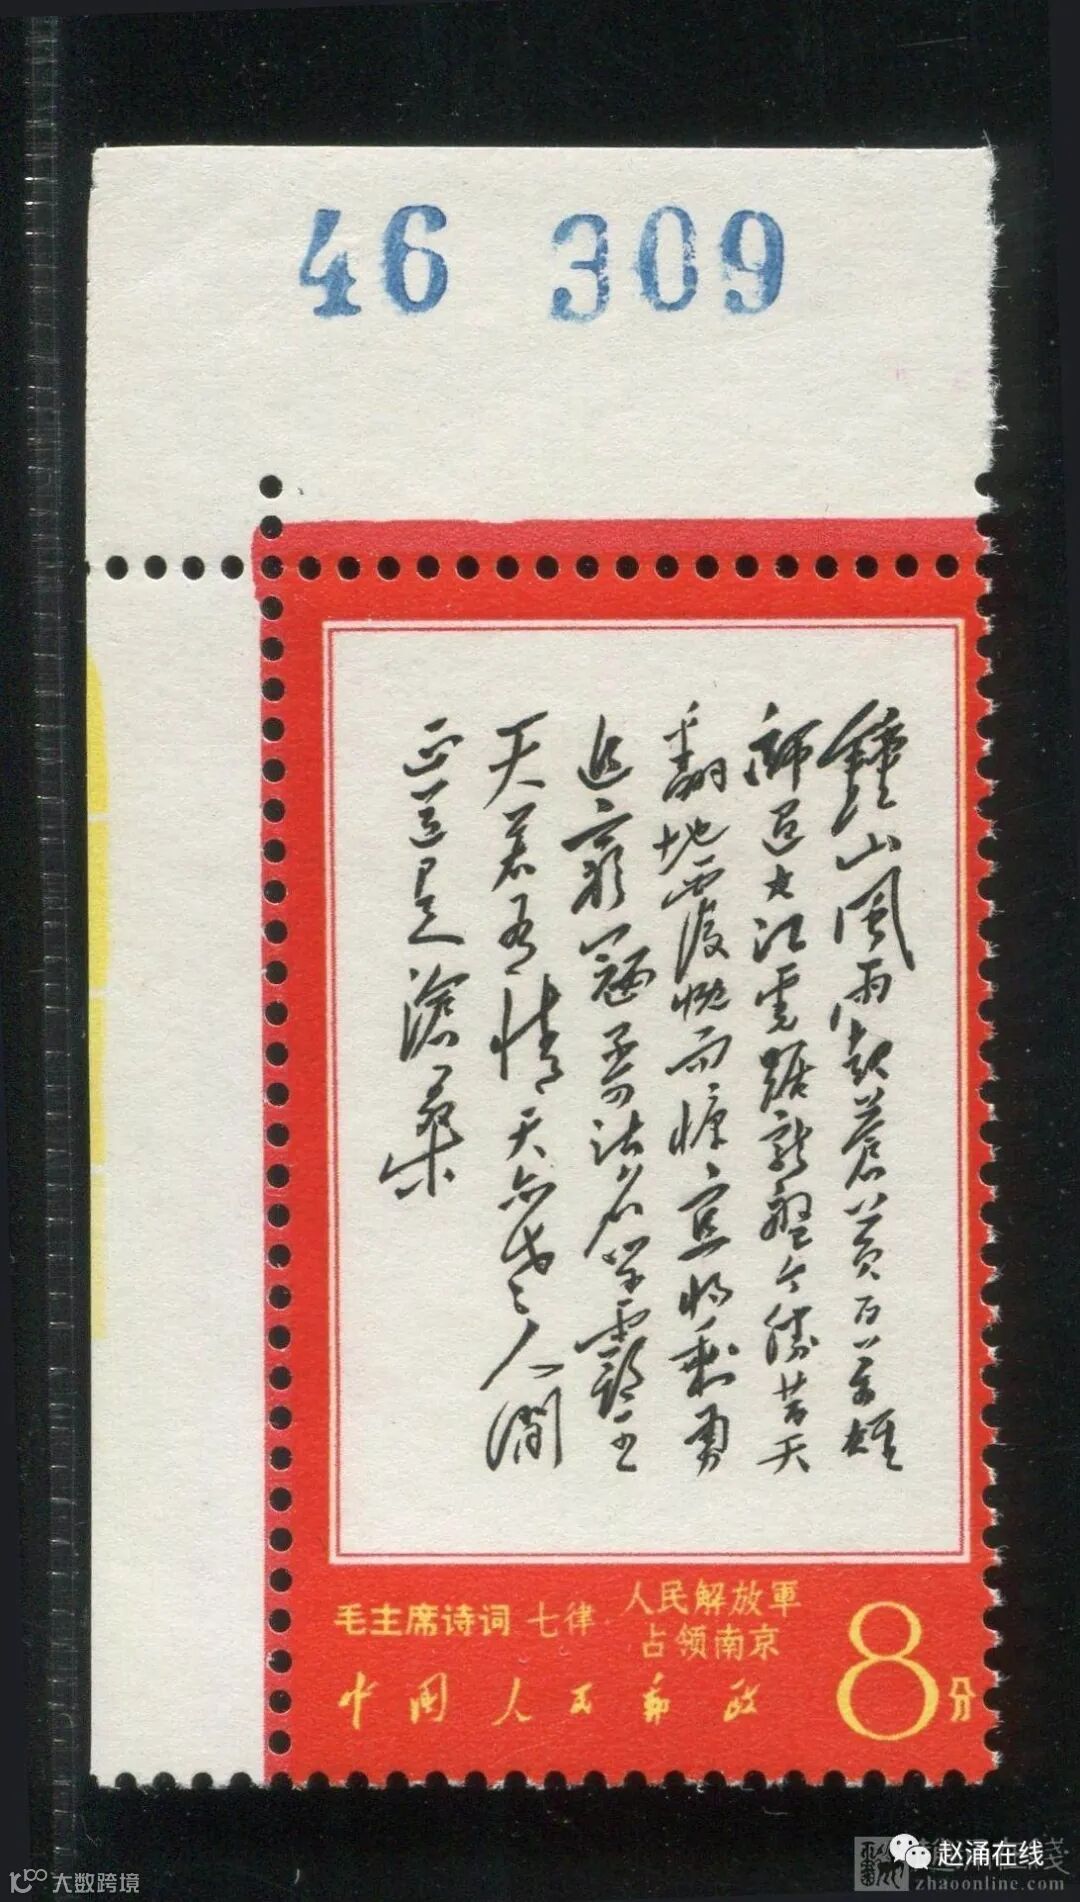 46 309
鐘山風雨起蒼黄百万雄
師过大江虎踞龙盤今勝昔天
翻地覆慨而慷宜将剩勇
追窮寇不可沽名学霸王
天若有情天亦老人間
正道是滄桑
毛主席诗词 七律·人民解放軍
占领南京
中国人民邮政
8分
赵涌在线
zhaoonline.com
大数跨境